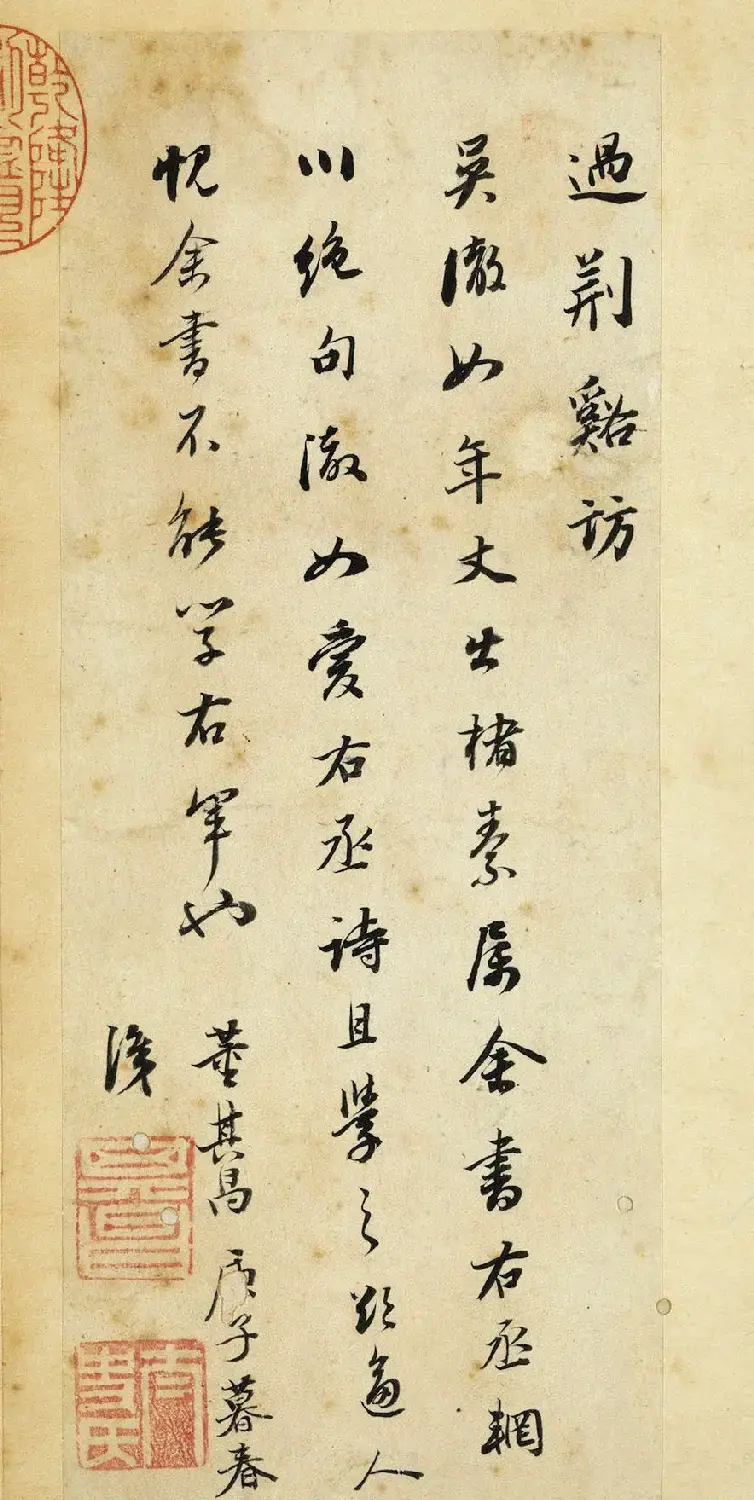 過荆谿訪
吳澈如年丈出楮素属余書右丞輞
川絶句澈如愛右丞詩且學之欲逼人
愧余書不能学右軍也
董其昌庚子暮春
識
乾隆